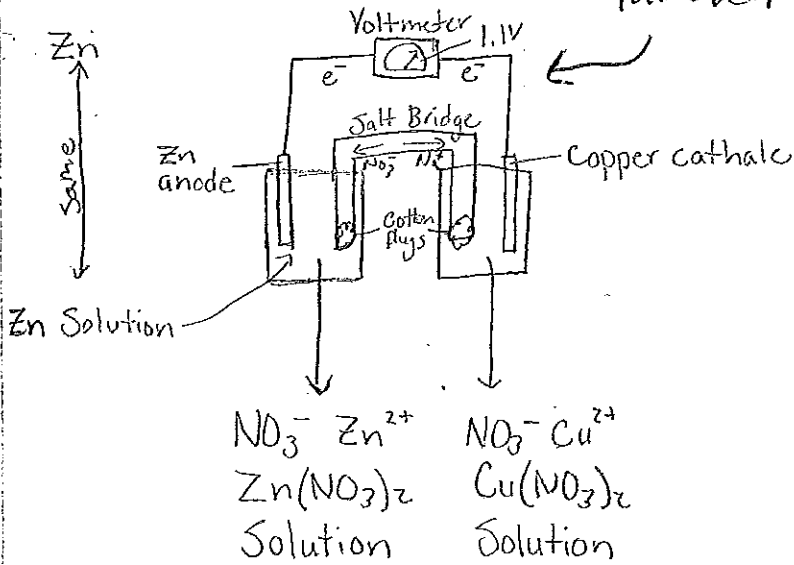 Voltmeter
1.1V
Zn
e⁻
e⁻
Same
Salt Bridge
NO₃⁻
Zn
anode
Copper cathale
Cotton
Plugs
Zn Solution
NO₃⁻ Zn²⁺
Zn(NO₃)₂
Solution
NO₃⁻ Cu²⁺
Cu(NO₃)₂
Solution